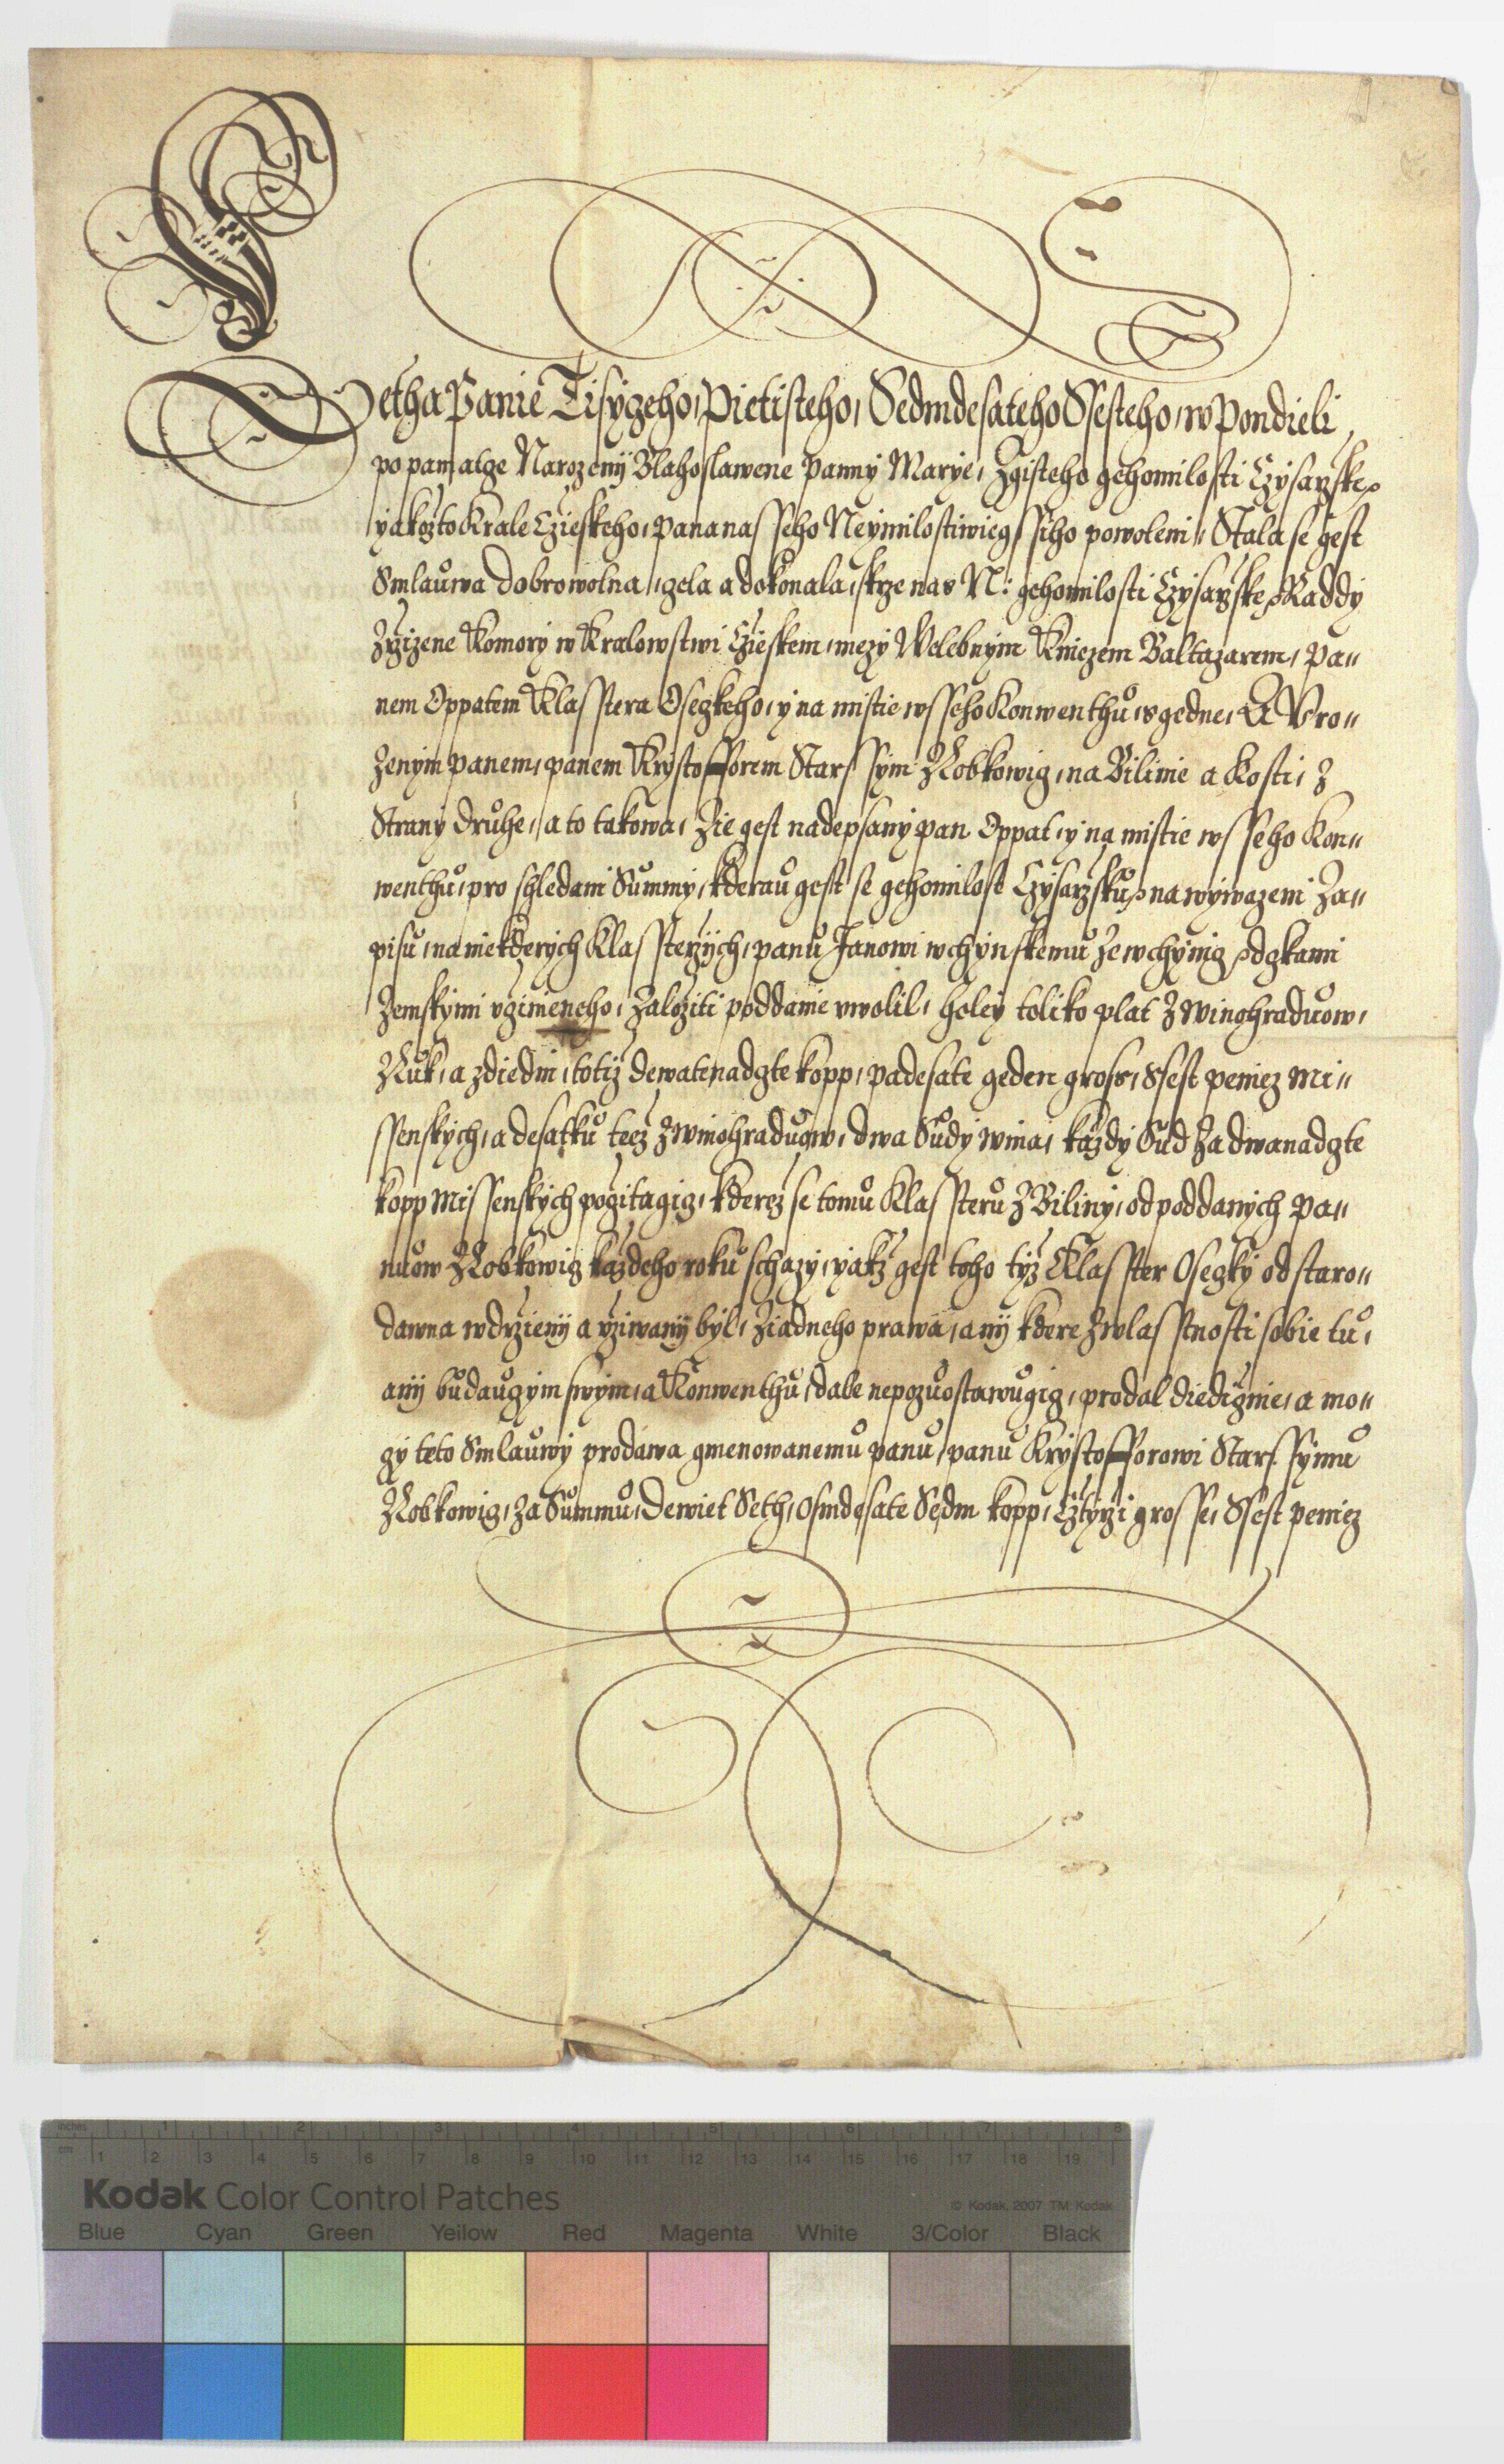 Letha Panie Tisyczeho, Pietisteho, Sedmdesateho Ssesteho, w Pondieli
po pamatcze Narozenij Blahoslawene Panny Marye, Z gisteho geho milosti Czysarzske
yakzto Krale Cžieskeho, pana nasseho Neymilostiwiegssiho powoleni, Stala se gest
Smlauwa dobrowolna, czela a dokonala, skrze nas N: geho milosti Czysarzske Raddy
Zržizene Komory w Kralowstwi Cžieskem, mezy Welebnym Kniezem Baltazarem, Pa„
nem Oppatem Klasstera Osezkeho, y na mistie wsseho Konwenthu, s gedne, A Uro„
zenym panem, panem Krystofforem Starssym Z Lobkowicz, na Bilinie a Kosti, z
Strany druhe, a to takowa, Zie gest nadepsany pan Oppat, y na mistie wsseho Kon„
wenthu, pro shledani Summy, kderau gest se geho milost Czysarzsku na wywazeni Za„
pisu, na niekderych Klassterzych, panu Janowi wchynskemu ze wchynicz dczkami
Zemskymi vcžinieneho, založiti poddanie vwolil, holey toliko plat z Winohraduow,
Luk, a z diedin, totiž dewatenadczte kopp, padesate geden gross, Ssest peniez Mi„
ssenskych, a desatku teež z winohraduow, dwa Sudy wina, každy Sud za dwanadczte
kopp Missenskych pocžitagicz, kderež se tomu Klassteru z Biliny, od poddanych Pa„
nuow Z Lobkowicz každeho roku schazy, yakž gest toho tyž Klasster Osezky od staro„
dawna w držieny a vžiwany byl, Žiadneho prawa, any kdere zwlasstnosti sobie tu,
any budauczym swym, a Konwenthu, dale nepozuostawugicz, prodal diedicžnie, a mo„
czy teto Smlauwy prodawa gmenowanemu panu, panu Krystofforowi Starssymu
Z Lobkowicz, za Summu, Dewiet Seth, osmdesate Sedm kopp, Cžtyrži grosse, Ssest peniez
inches 1 2 3 4 5 6 7 8
cm 1 2 3 4 5 6 7 8 9 10 11 12 13 14 15 16 17 18 19
Kodak Color Control Patches
© Kodak, 2007 TM: Kodak
Blue Cyan Green Yellow Red Magenta White 3/Color Black